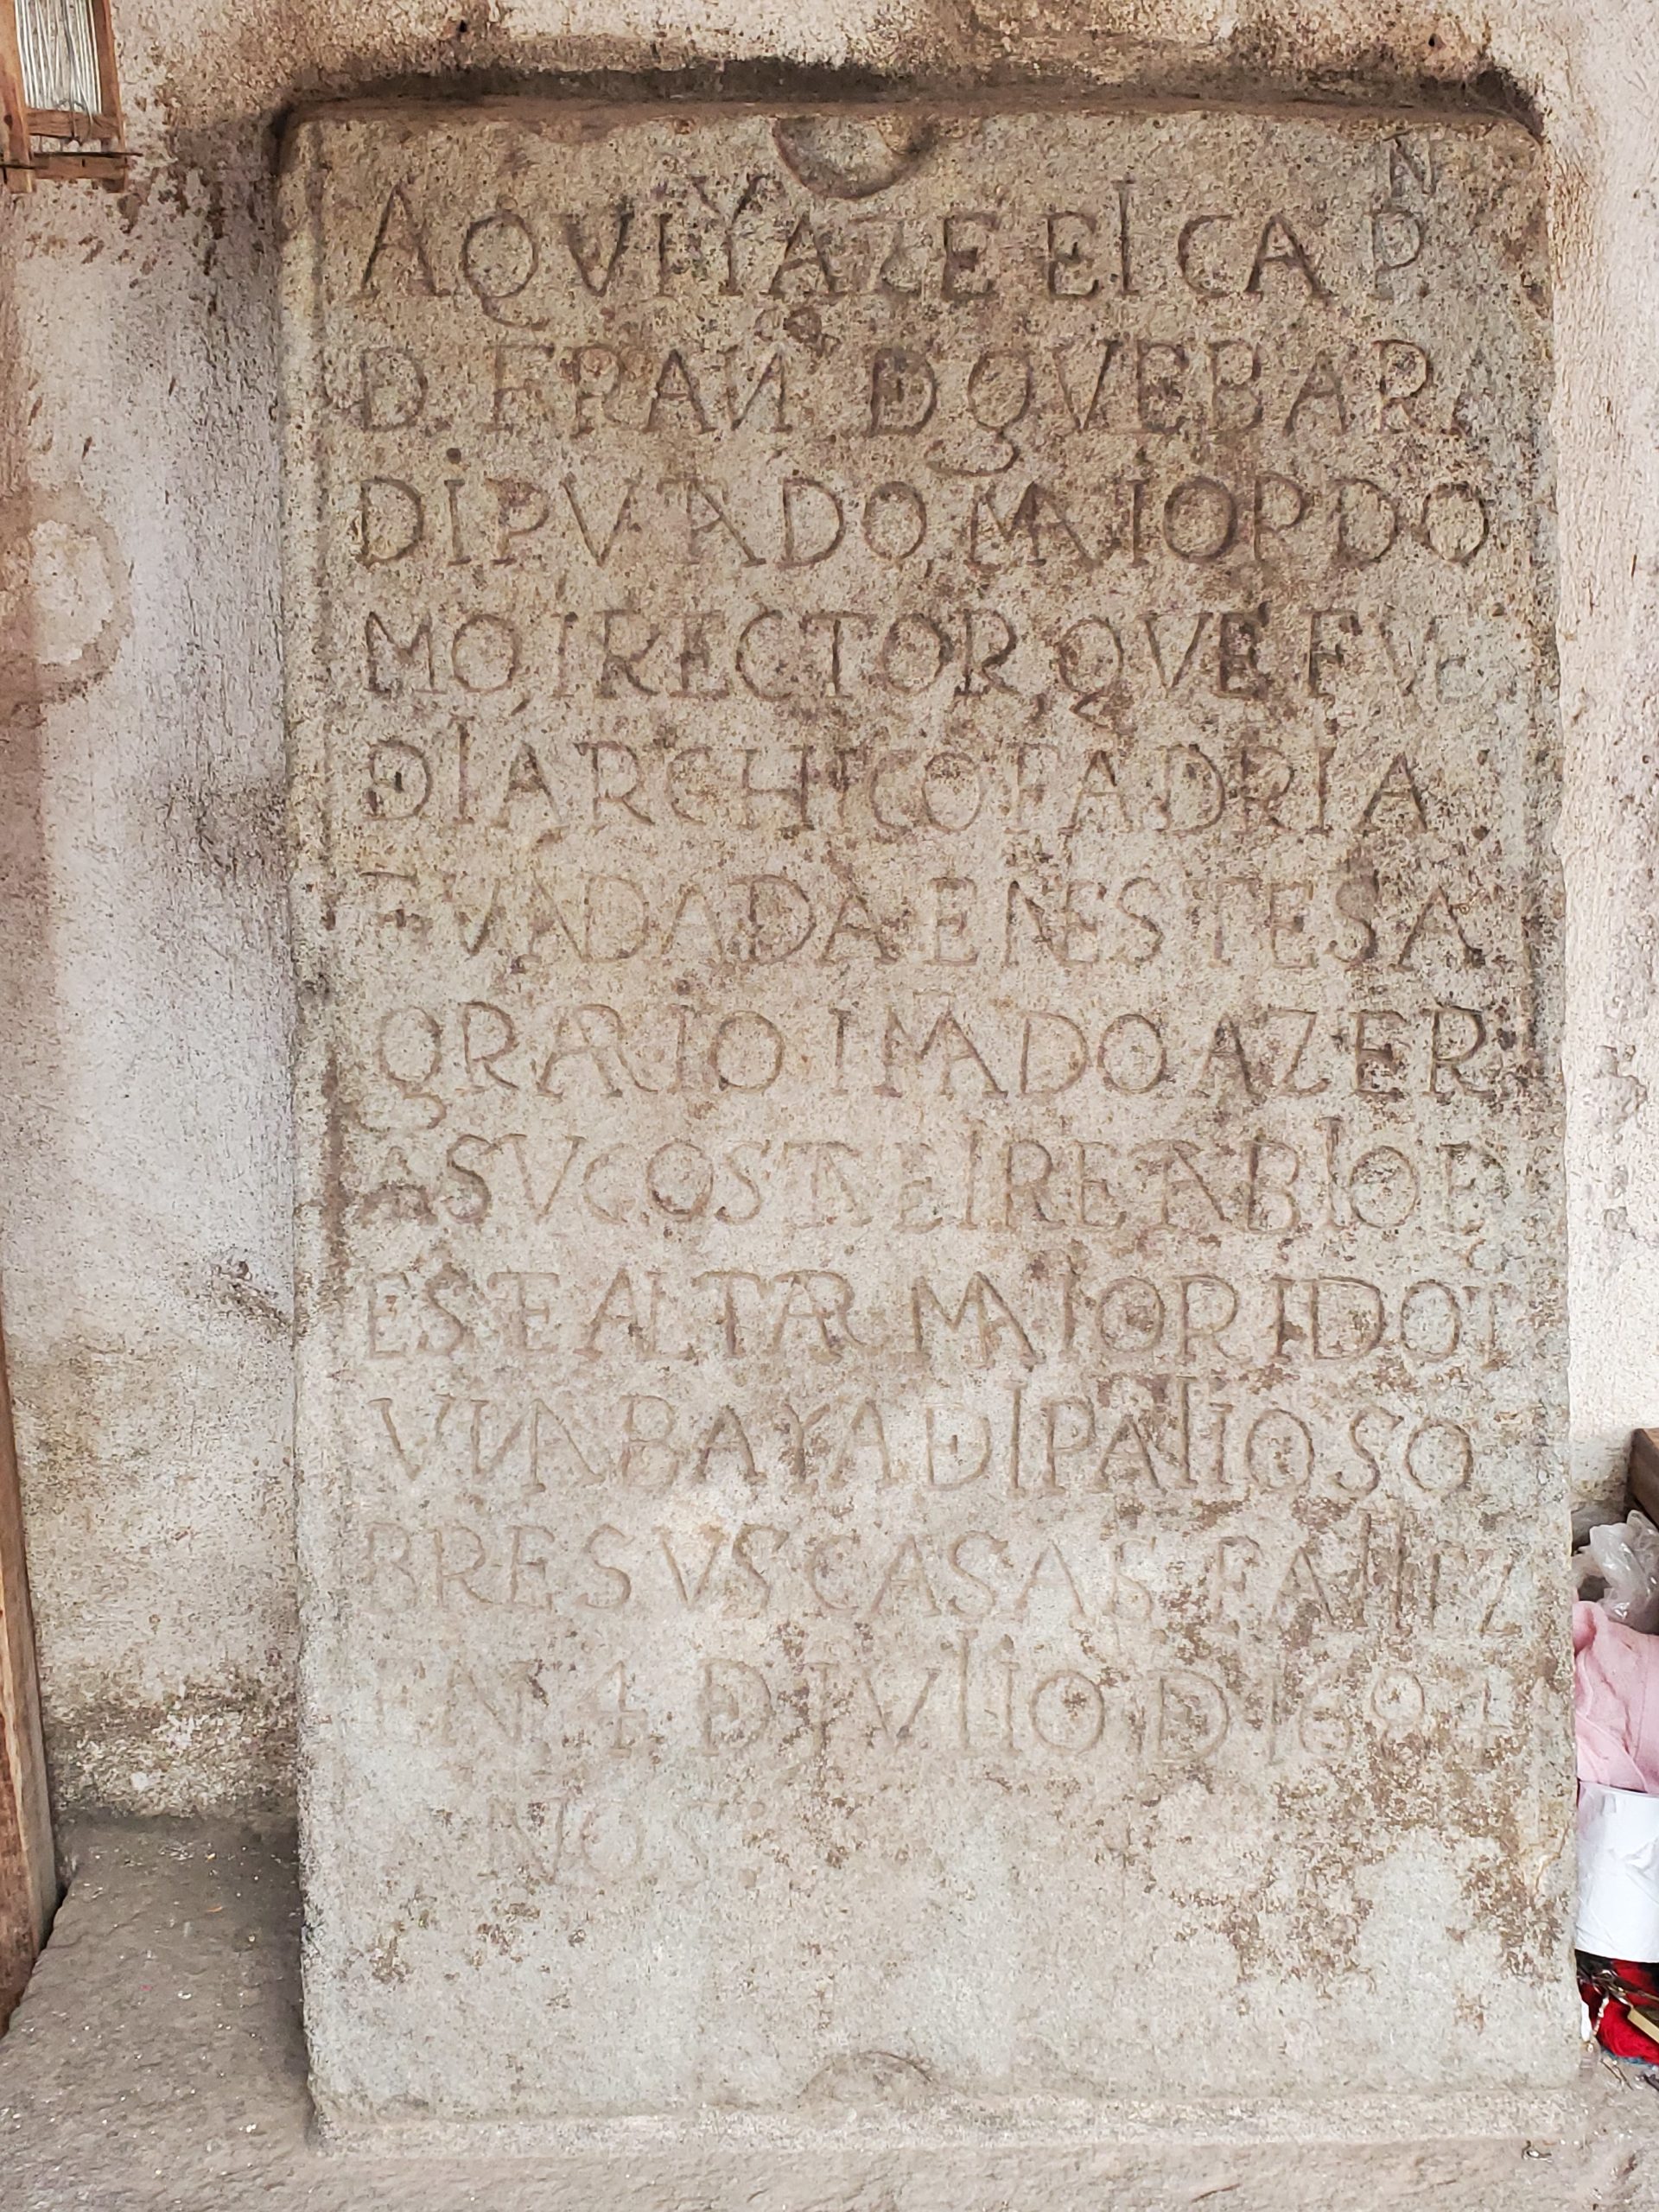 AQVI YAZE El CAPN
D. FRANCO D GVEBARA
DIPVTADO, MAIORDO
MO, I RECTOR, QVE FVE
D lA ARCHICOFADRIA
FVNDADA EN ESTE SA
GRARIO I MADO AZER
A SV COSTA El RETABlO D
ESTE ALTAR MAIOR I DOTO
VNA BAYA D PAlIO SO
BRE SVS CASAS FAllEZ
EN 4 D IVlIO D 1694
NOS